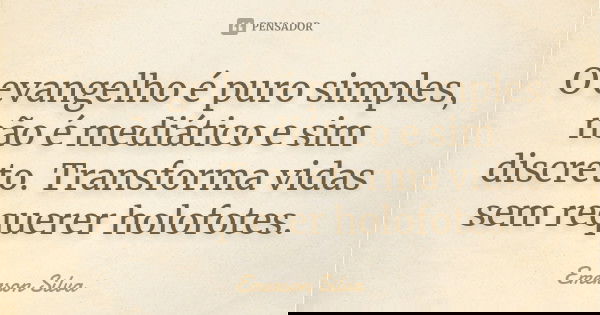 PENSADOR
O evangelho é puro simples,
não é mediático e sim
discreto. Transforma vidas
sem requerer holofotes.
Emerson Silva